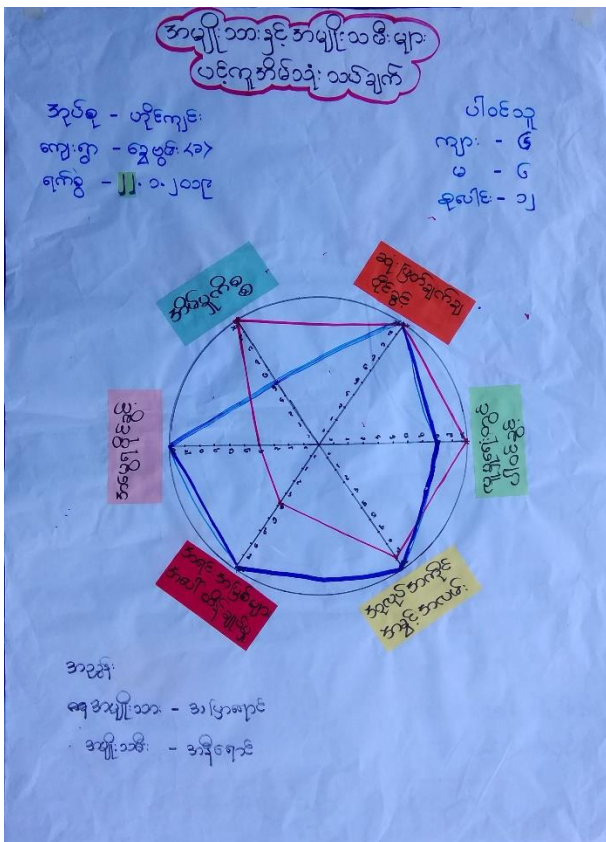 အမျိုးသားနှင့်အမျိုးသမီးများ
ပင့်ကူအိမ်သုံးသပ်ချက်
အုပ်စု - ဟိုင်းကျင်း
ကျေးရွာ - ခွေဗွမ်း <ခ>
ရက်စွဲ - ၂၂.၁.၂၀၁၉
ပါဝင်သူ
ကျား - ၆
မ - ၆
စုပေါင်း - ၁၂
အိမ်မှုကိစ္စ
ဆုံးဖြတ်ချက်ချ
ပိုင်ခွင့်
အမွေရပိုင်ခွင့်
လူမှုရေးတွင်
ပါဝင်ခွင့်
အရင်းအမြစ်များ
အပေါ် ထိန်းချုပ်မှု
အလုပ်အကိုင်
အခွင့်အလမ်း
အညွှန်း
အမျိုးသား - အပြာရောင်
အမျိုးသမီး - အနီရောင်